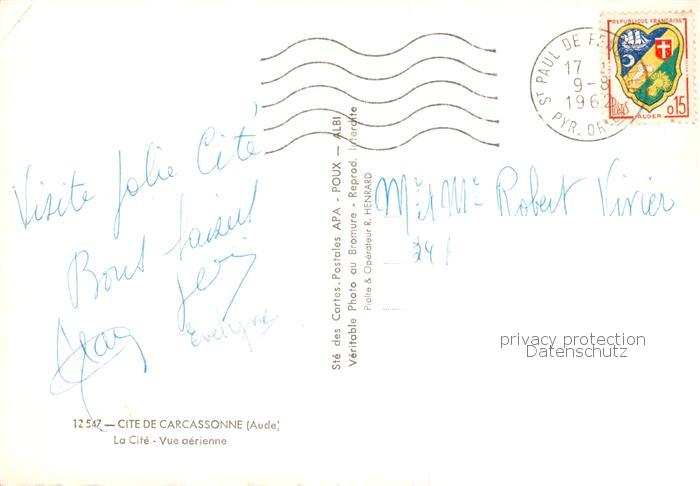 REPUBLIQUE FRANÇAISE
POSTES
0,15
ALGER
ST PAUL DE
17
9-
1962
PYR. OR
Visite Jolie Cité
Bons baisers
Evelyne
Mr et Mme Robert Vivier
24
privacy protection
Datenschutz
Sté des Cartes. Postales APA - POUX - ALBI
Véritable Photo au Bromure - Reprod. Interdite
Piolte & Opérateur R. HENRARD
12 547 — CITE DE CARCASSONNE (Aude)
La Cité - Vue aérienne